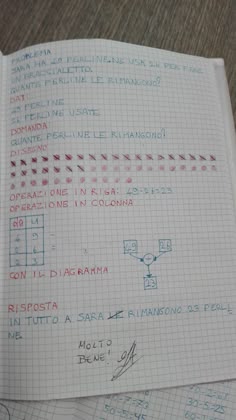 PROBLEMA
SARA HA 49 PERLINE NE USA 26 PER FARE
UN BRACCIALETTO.
QUANTE PERLINE LE RIMANGONO?
DATI
49 PERLINE
26 PERLINE USATE
DOMANDA
QUANTE PERLINE LE RIMANGONO?
DISEGNO
OPERAZIONE IN RIGA: 49-26=23
OPERAZIONE IN COLONNA
DA U
4 9 -
2 6 =
2 3
49 26
-
23
CON IL DIAGRAMMA
RISPOSTA
IN TUTTO A SARA LE RIMANGONO 23 PERLI
NE
MOLTO
BENE!